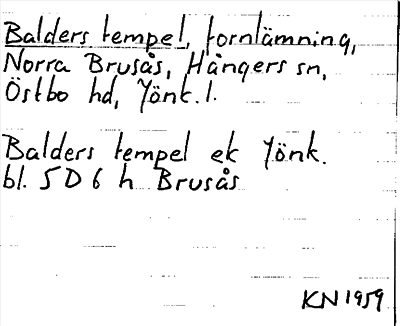 Balders tempel, fornlämning,
Norra Brusås, Hångers sn,
Östbo hd, Jönk. l.
Balders tempel ek Jönk.
bl. 5 D 6 h Brusås
KN 1959